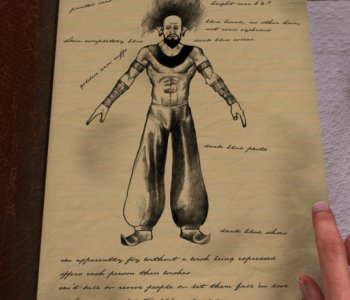 pointed ears
height was 6'2"
blue beard, no other hair,
not even eyebrows
Skin completely blue
dark blue
golden arm cuffs
dark blue pants
dark blue shoes
can apparently fly without a wish being expressed
offers each person three wishes
can't kill or revive people or let them fall in love